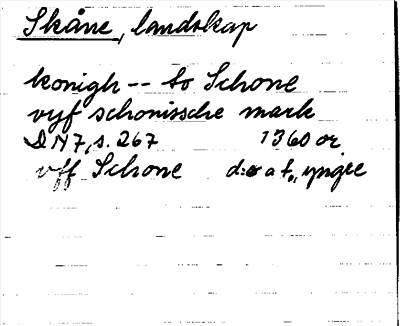 Skåne, landskap
konigh -- to Schone
vyf schonissche mark
DN 7, s. 267 1360 or.
vff Schone d:o a f., yngre